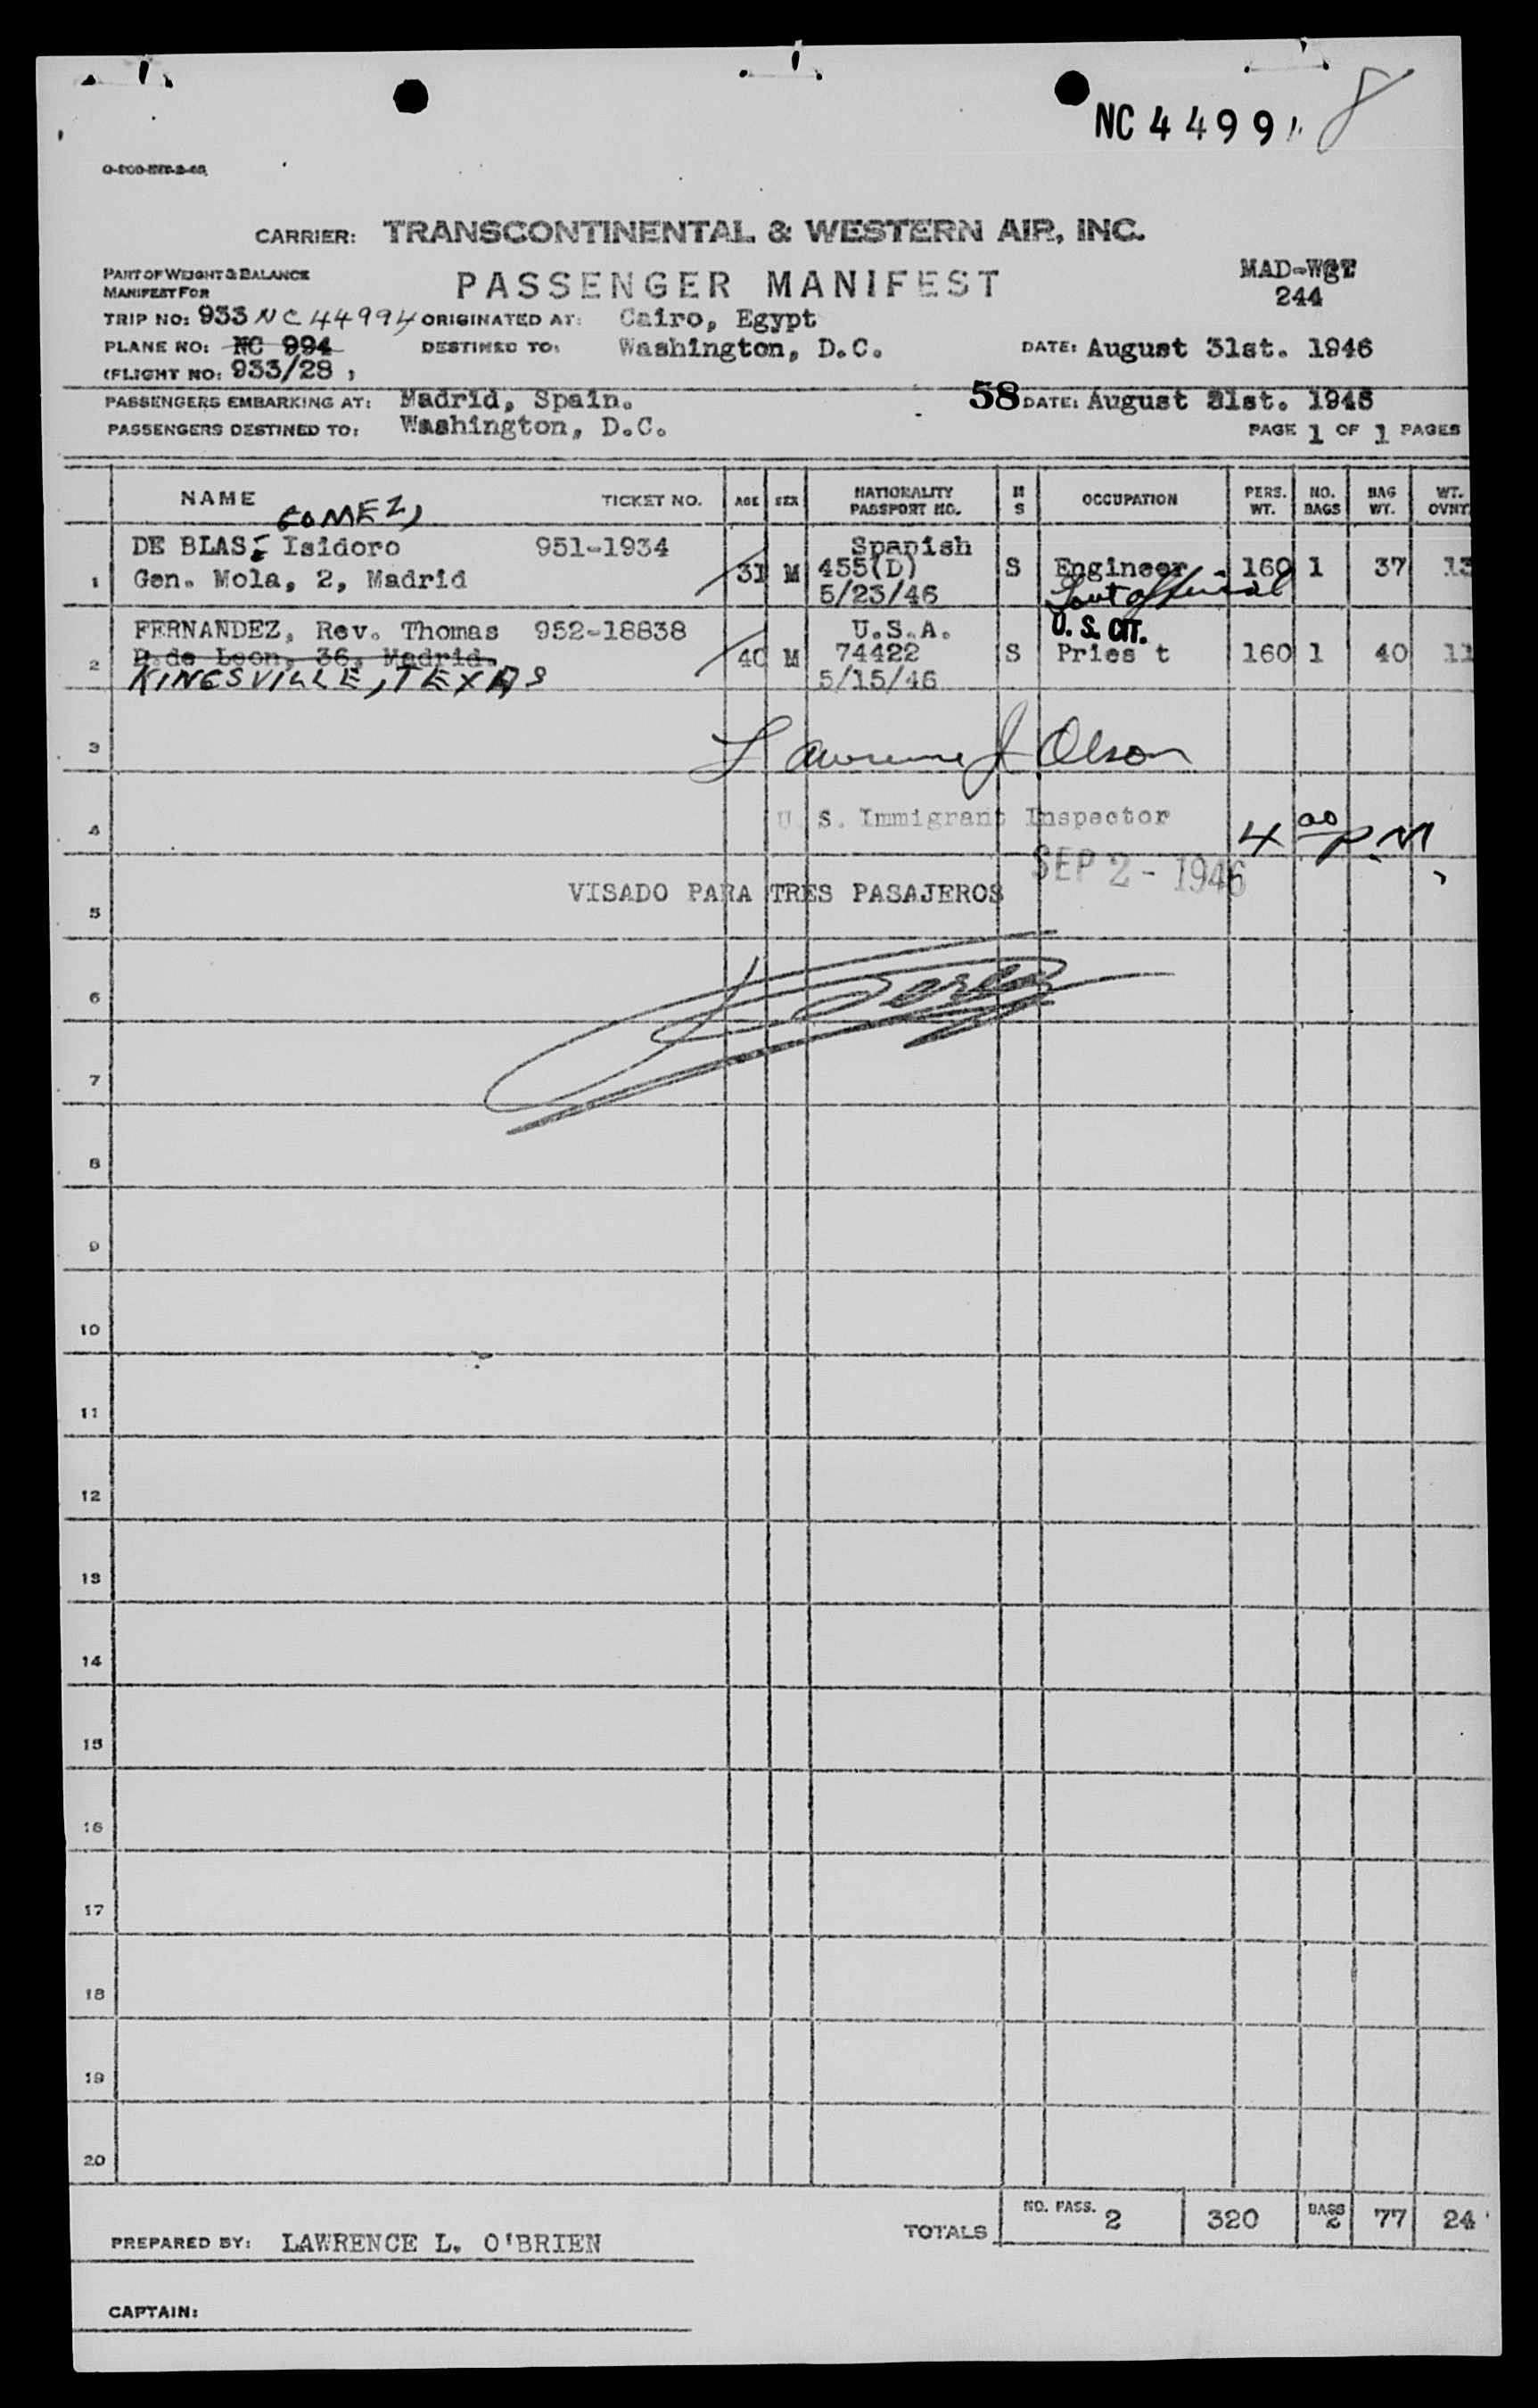 NC 4499 8
CARRIER: TRANSCONTINENTAL & WESTERN AIR, INC.
PART OF WEIGHT & BALANCE
MANIFEST FOR
PASSENGER MANIFEST
MAD-WGT
244
TRIP NO: 933 NC44994 ORIGINATED AT: Cairo, Egypt
PLANE NO: NC 994 DESTINED TO: Washington, D.C. DATE: August 31st. 1946
(FLIGHT NO: 933/28 )
PASSENGERS EMBARKING AT: Madrid, Spain. 58 DATE: August 31st. 1946
PASSENGERS DESTINED TO: Washington, D.C. PAGE 1 OF 1 PAGES
NAME TICKET NO. AGE SEX NATIONALITY PASSPORT NO. M S OCCUPATION PERS. WT. NO. BAGS BAG WT. WT. OVNT
GOMEZ,
DE BLAS, Isidoro 951-1934 Spanish
1 Gen. Mola, 2, Madrid 31 M 455(D) S Engineer 160 1 37 13
5/23/46 Govt official
FERNANDEZ, Rev. Thomas 952-18838 U.S.A. U.S. CIT.
2 P. de Leon, 36, Madrid. 40 M 74422 S Pries t 160 1 40 11
KINGSVILLE, TEXAS 5/15/46
3 Lawrence J Olson
4 U. S. Immigrant Inspector 4 00 P.M.
SEP 2 - 1946
5 VISADO PARA TRES PASAJEROS
6
7
8
9
10
11
12
13
14
15
16
17
18
19
20
TOTALS NO. PASS. 2 320 BAGS 2 77 24
PREPARED BY: LAWRENCE L. O'BRIEN
CAPTAIN: